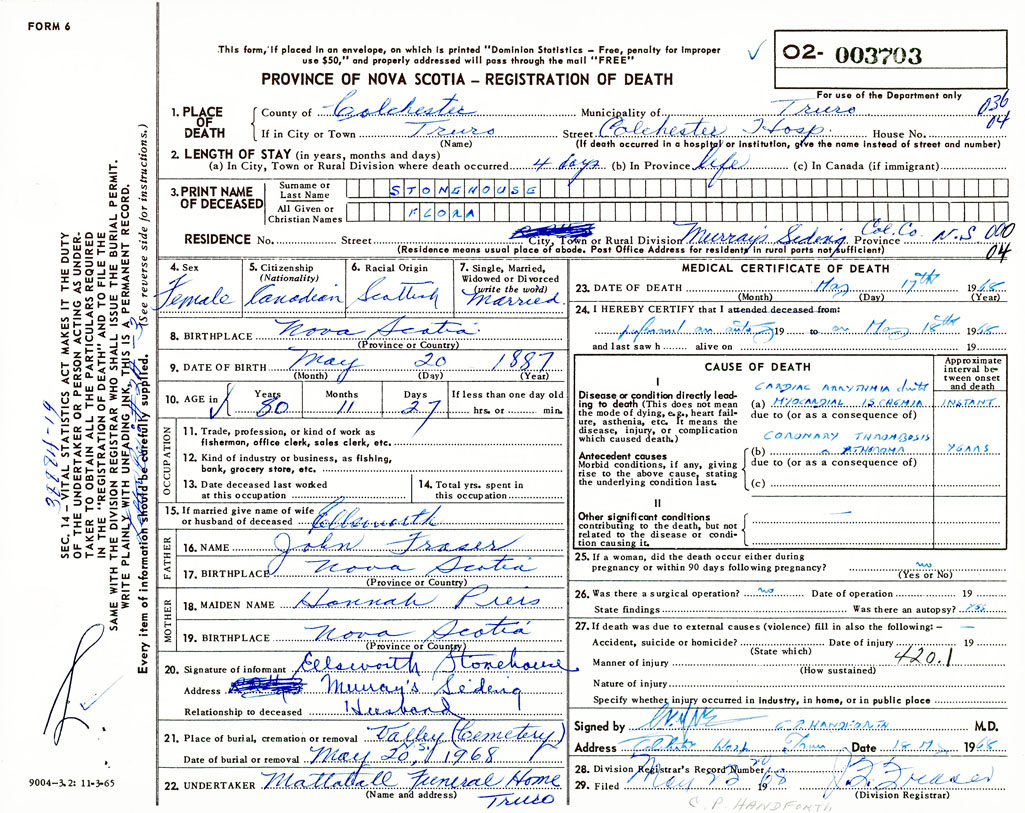 FORM 6
This form, if placed in an envelope, on which is printed "Dominion Statistics – Free, penalty for improper
use $50," and properly addressed will pass through the mail "FREE"
✓ 02- 003703
PROVINCE OF NOVA SCOTIA – REGISTRATION OF DEATH
For use of the Department only
036
04
1. PLACE OF DEATH
County of Colchester Municipality of Truro
If in City or Town Truro Street Colchester Hosp. House No.
(Name) (If death occurred in a hospital or institution, give the name instead of street and number)
2. LENGTH OF STAY (in years, months and days)
(a) In City, Town or Rural Division where death occurred 4 days (b) In Province life (c) In Canada (if immigrant)
3. PRINT NAME OF DECEASED
Surname or Last Name STONEHOUSE
All Given or Christian Names FLORA
RESIDENCE No. Street City, Town or Rural Division Murray's Siding Col. Co. Province N.S 000
(Residence means usual place of abode. Post Office Address for residents in rural parts not sufficient) 04
4. Sex Female
5. Citizenship (Nationality) Canadian
6. Racial Origin Scottish
7. Single, Married, Widowed or Divorced (write the word) Married
8. BIRTHPLACE Nova Scotia
(Province or Country)
9. DATE OF BIRTH May 20 1887
(Month) (Day) (Year)
10. AGE in Years 80 Months 11 Days 27 If less than one day old hrs. or min.
OCCUPATION
11. Trade, profession, or kind of work as
fisherman, office clerk, sales clerk, etc.
12. Kind of industry or business, as fishing,
bank, grocery store, etc.
13. Date deceased last worked
at this occupation
14. Total yrs. spent in
this occupation
15. If married give name of wife
or husband of deceased Ellsworth
FATHER
16. NAME John Fraser
17. BIRTHPLACE Nova Scotia
(Province or Country)
MOTHER
18. MAIDEN NAME Hannah Piers
19. BIRTHPLACE Nova Scotia
(Province or Country)
20. Signature of informant Ellsworth Stonehouse
Address Murray's Siding
Relationship to deceased Husband
21. Place of burial, cremation or removal Valley (Cemetery)
Date of burial or removal May 20, 1968
22. UNDERTAKER Mattatall Funeral Home
(Name and address) Truro
MEDICAL CERTIFICATE OF DEATH
23. DATE OF DEATH May 17th 1968
(Month) (Day) (Year)
24. I HEREBY CERTIFY that I attended deceased from:
19 to on May 18th 1968
and last saw h alive on 19
CAUSE OF DEATH
Approximate interval between onset and death
I
Disease or condition directly leading to death (This does not mean
the mode of dying, e.g., heart failure, asthenia, etc. It means the
disease, injury, or complication
which caused death.)
CARDIAC ARRYTHMIA
(a) MYOCARDIAL ISCHEMIA INSTANT.
due to (or as a consequence of)
Antecedent causes
Morbid conditions, if any, giving
rise to the above cause, stating
the underlying condition last.
CORONARY THROMBOSIS
(b) ATHEROMA YEARS
due to (or as a consequence of)
(c)
II
Other significant conditions
contributing to the death, but not
related to the disease or condition causing it.
25. If a woman, did the death occur either during
pregnancy or within 90 days following pregnancy? no
(Yes or No)
26. Was there a surgical operation? no Date of operation 19
State findings Was there an autopsy? yes
27. If death was due to external causes (violence) fill in also the following: –
Accident, suicide or homicide? Date of injury 19
(State which)
Manner of injury 420.1
(How sustained)
Nature of injury
Specify whether injury occurred in industry, in home, or in public place
Signed by C.P. HANDFORTH M.D.
Address Hosp Truro Date 18 May 1968
28. Division Registrar's Record Number
29. Filed May 19
(Division Registrar)
C. P. HANDFORTH
SEC. 14 – VITAL STATISTICS ACT MAKES IT THE DUTY
OF THE UNDERTAKER OR PERSON ACTING AS UNDER-
TAKER TO OBTAIN ALL THE PARTICULARS REQUIRED
IN THE "REGISTRATION OF DEATH" AND TO FILE THE
SAME WITH THE DIVISION REGISTRAR WHO SHALL ISSUE THE BURIAL PERMIT.
WRITE PLAINLY WITH UNFADING INK, THIS IS A PERMANENT RECORD.
Every item of information should be carefully supplied. (See reverse side for instructions.)
9004–3.2: 11-3-65